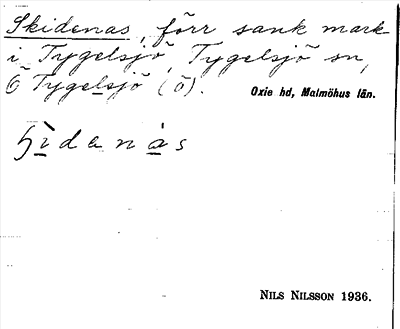 Skidenas, förr sank mark
i Tygelsjö, Tygelsjö sn,
6 Tygelsjö (ö). Oxie hd, Malmöhus län.
ɧìdenàs
NILS NILSSON 1936.